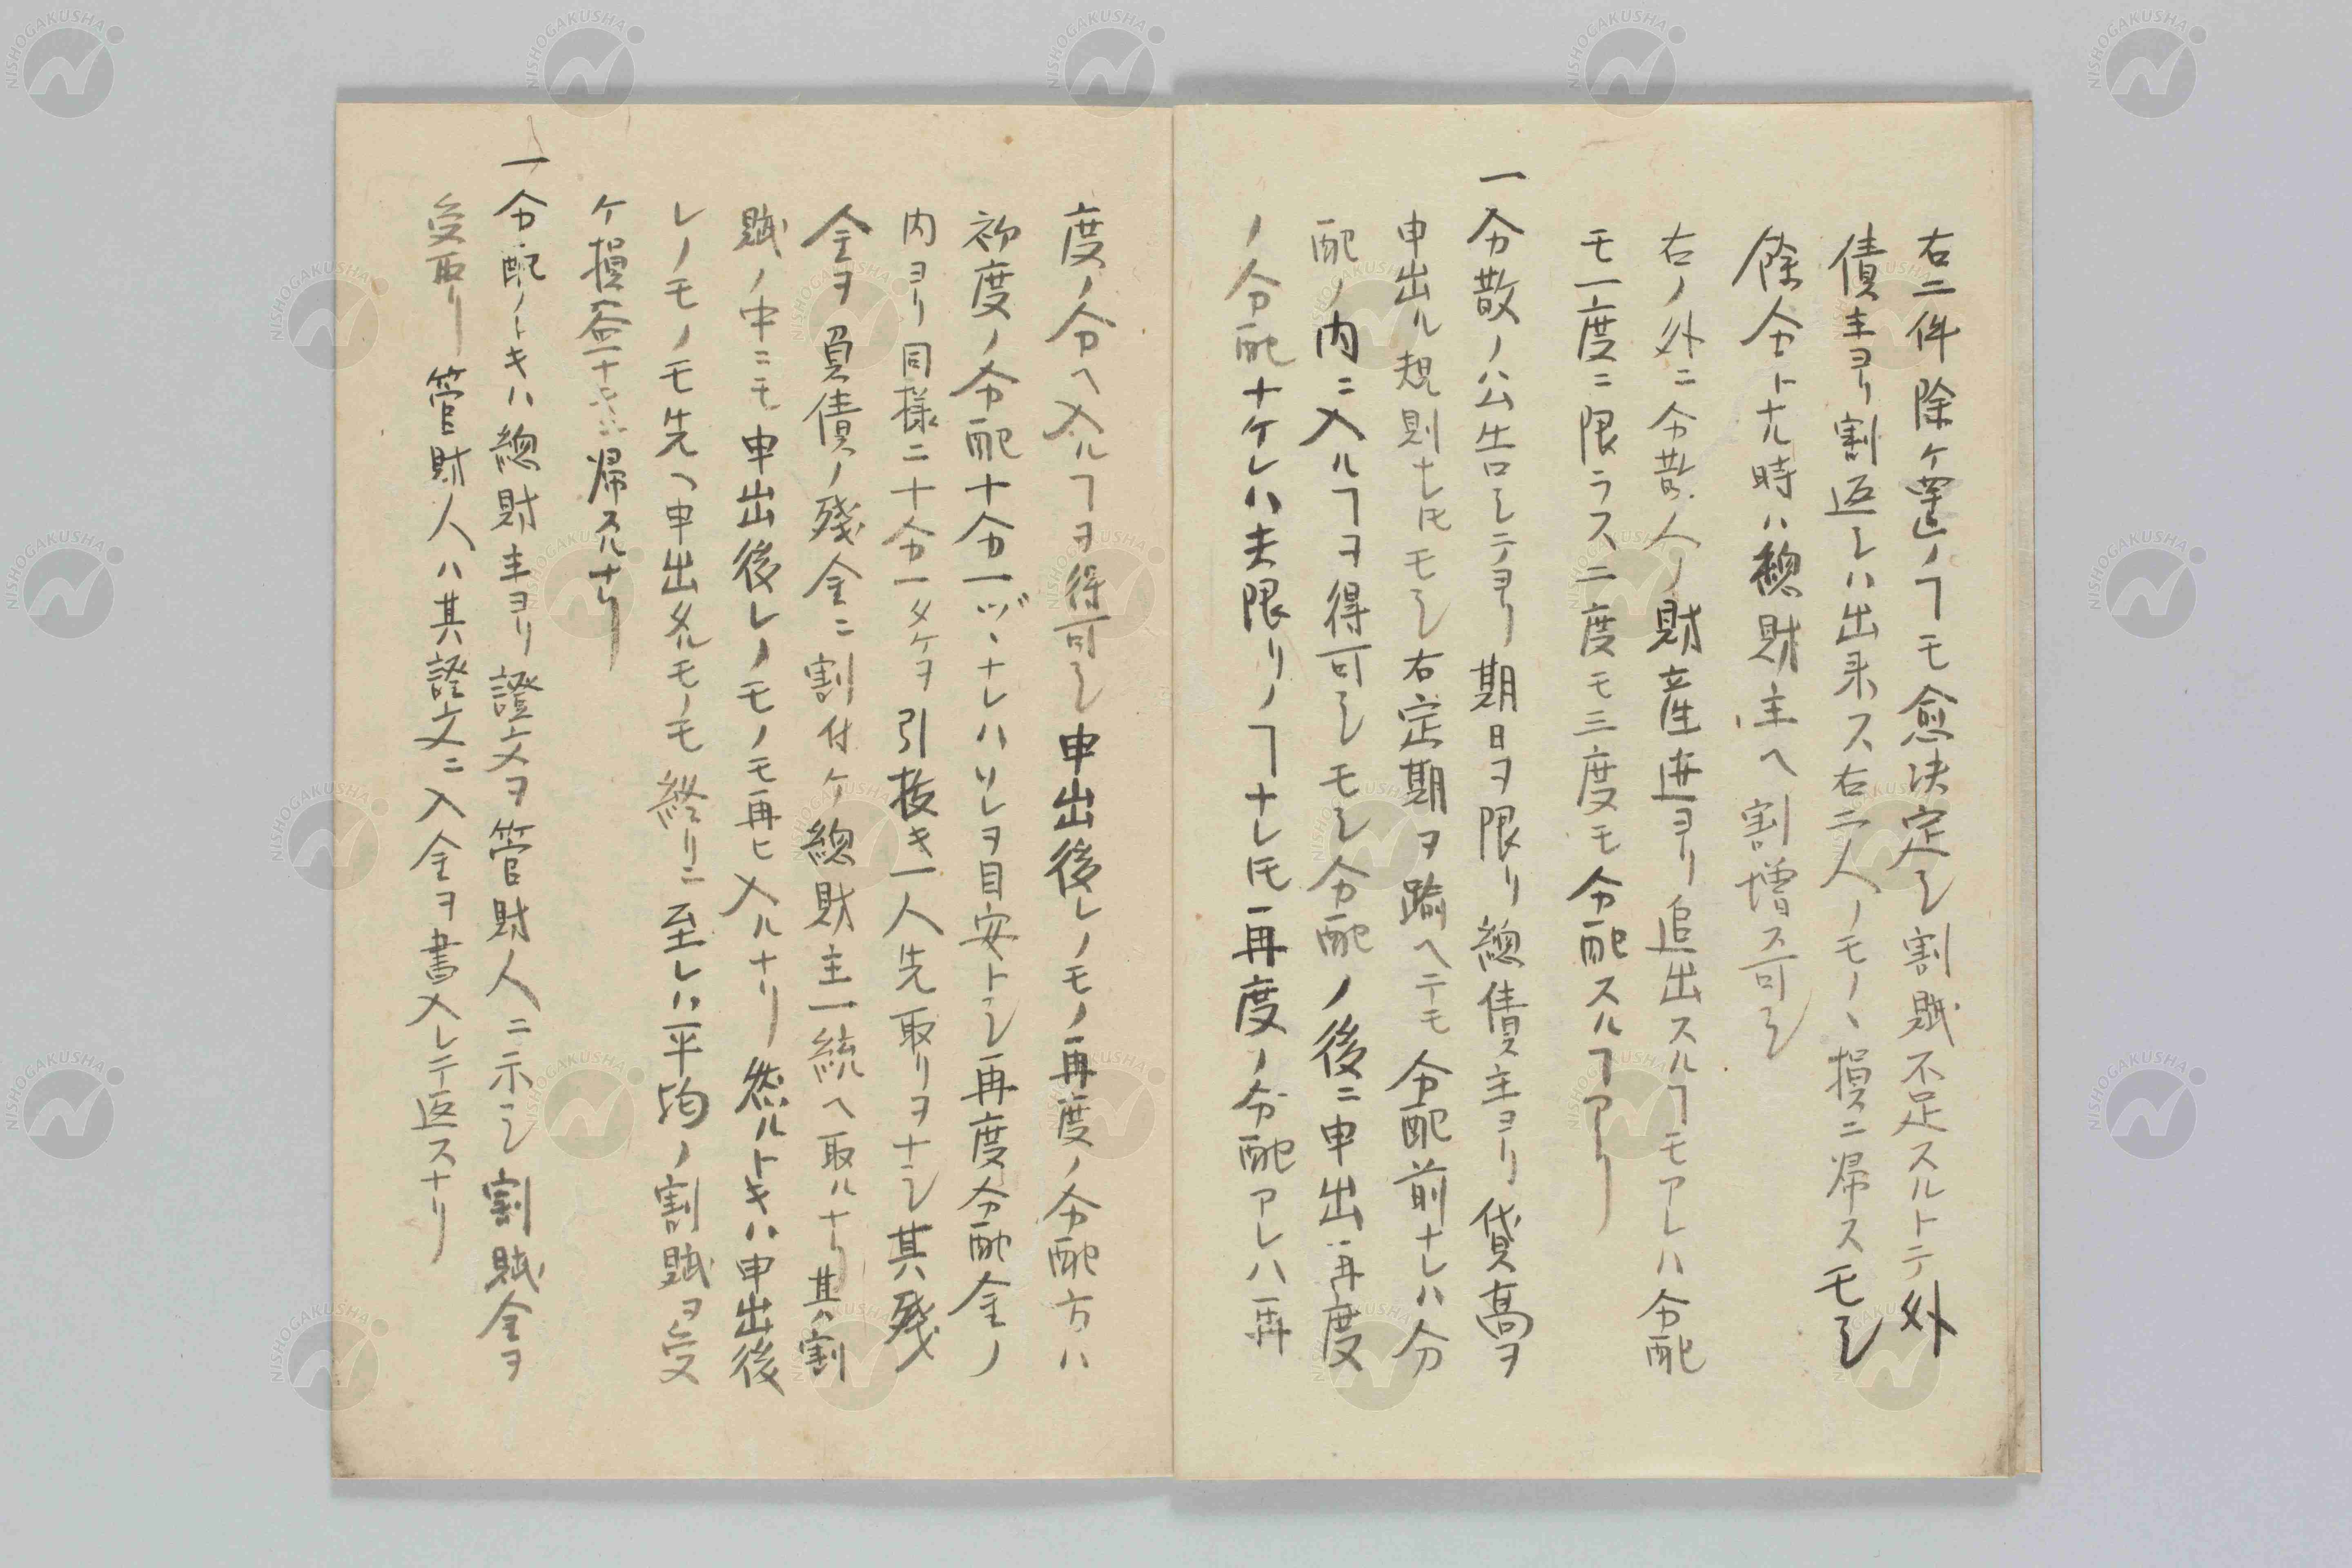 右二件除ケ置ノヿモ愈決定シ割賦不足スルトテ外
債主ヨリ割返シハ出来ス右二人ノモノヽ損ニ帰スモシ
餘金ト九時ハ總財主ヘ割増ス可シ
右ノ外ニ分散人ノ財産迯ヨリ追出スルヿモアレハ分配
モ一度ニ限ラス二度モ三度モ分配スルヿアリ
一分散ノ公告シテヨリ期日ヲ限リ總債主ヨリ貸高ヲ
申出ル規則ナレ𪜈モシ右定期ヲ踰ヘテモ分配前ナレハ分
配ノ内ニ入ルヿヲ得可シモシ分配ノ後ニ申出再度
ノ分配ナケレハ夫限リノヿナレ𪜈再度ノ分配アレハ再
度ノ分ヘ入ルヿヲ得可シ申出後レノモノ再度ノ分配方ハ
初度ノ分配十分一ヅヽナレハソレヲ目安トシ再度分配金ノ
内ヨリ同様ニ十分一タケヲ引抜キ一人先取リヲナシ其残
金ヲ負債ノ残金ニ割付ケ總財主一統ヘ取ルナリ其割
賦ノ中ニモ申出後レノモノモ再ヒ入ルナリ然ルトキハ申出後
レノモノモ先ヘ申出タルモノモ終リニ至レハ平均ノ割賦ヲ受
ケ損益ナキニ帰スルナリ
一分配ノトキハ總財主ヨリ證文ヲ管財人ニ示シ割賦金ヲ
受取リ管財人ハ其證文ニ入金ヲ書入レテ返スナリ
NISHOGAKUSHA